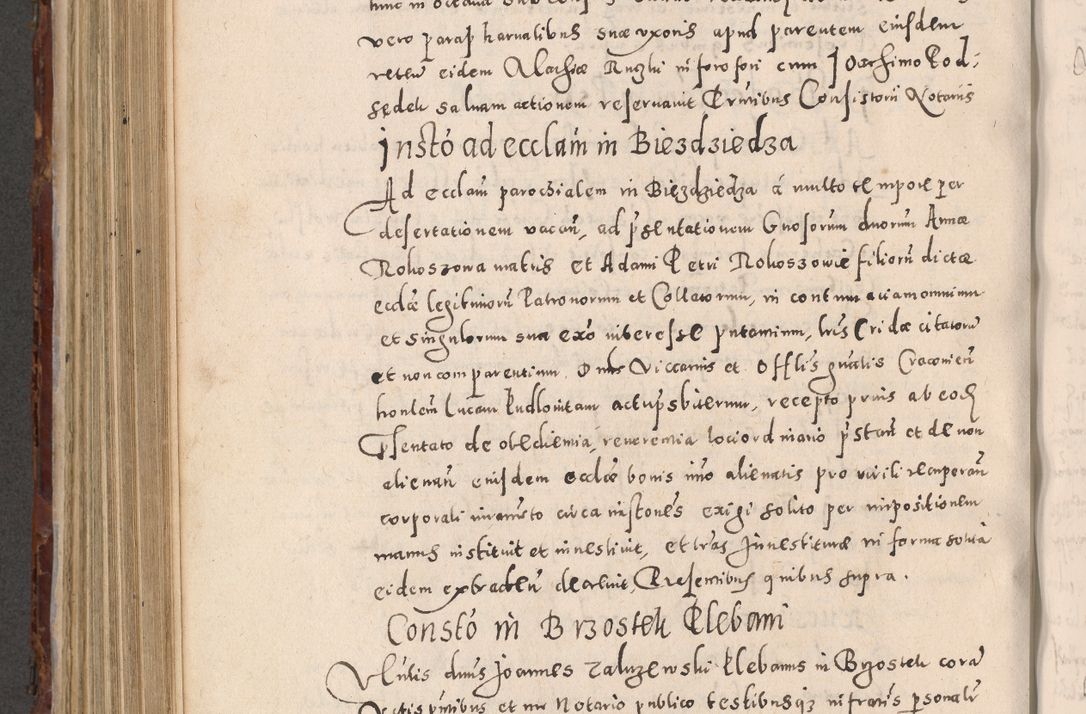 vero paraphernalibus suae uxoris apud parentem eiusdem
eidem Alachiae Ruszki in foro fori cum Joachimo Pod-
sędek saluam actionem reseruauit Pntibus Consistorii Notariis
Insto ad ecclam in Biezdziedza
Ad ecclam parochialem in Biezdziedza a multo tempore per
desertationem vacan, ad pntationem Gnosorum duorum Annae
Rokoszowa matris et Adami Petri Rokoszowie filiorū dictae
ecclae legitimorū Patronorum et Collatorum, in contumaciam omnium
et singulorum sua exo interesse putantium, lris Cridae citatorū
et non comparentium Dnus Viccarius et Offlis gnalis Cracouien
honlem Lucam Kudlowitam actu psbiterum, recepto prius ab eodē
Psentato de obedientia, reuerentia loci ordinario pstan et de non
alienan eiusdem ecclae bonis imo alienatis pro virili recuperan
corporali iuramto circa instones exigi solito per impositionem
manus instituit et inuestiuit, et lras Inuestiturae in forma solita
eidem extraden decreuit, Presentibus quibus supra.
Consto in Brzostek Plebani
Vblis dnus Joannes Zaluzewski Plebanus in Brzostek corā
Actis pntibus et me Notario publico testibusq infratis personalr